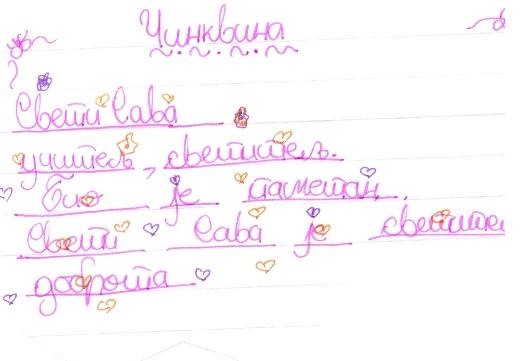 Чинквина
Свети Сава
учитељ, светитељ.
Био је паметан.
Свети Сава је светите
доброта